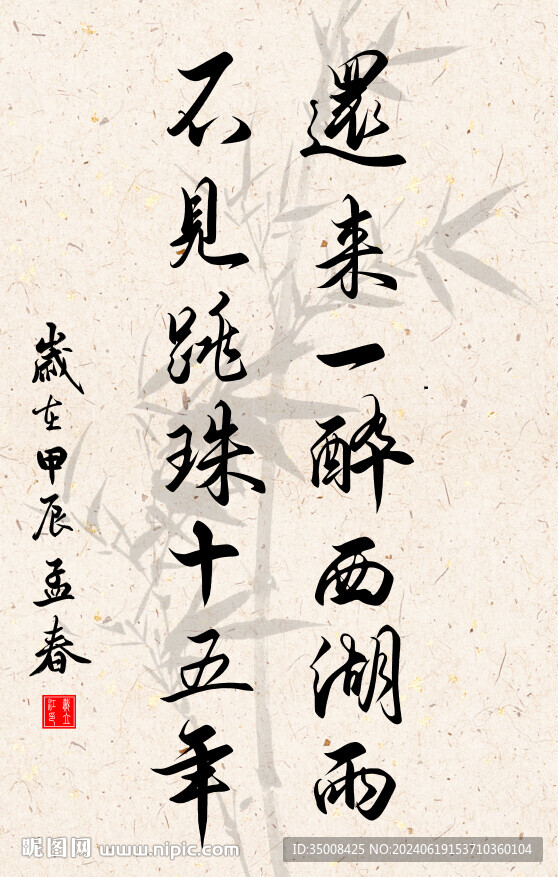 還来一醉西湖雨
不見跳珠十五年
歲在甲辰孟春
昵图网 www.nipic.com
ID:35008425 NO:20240619153710360104